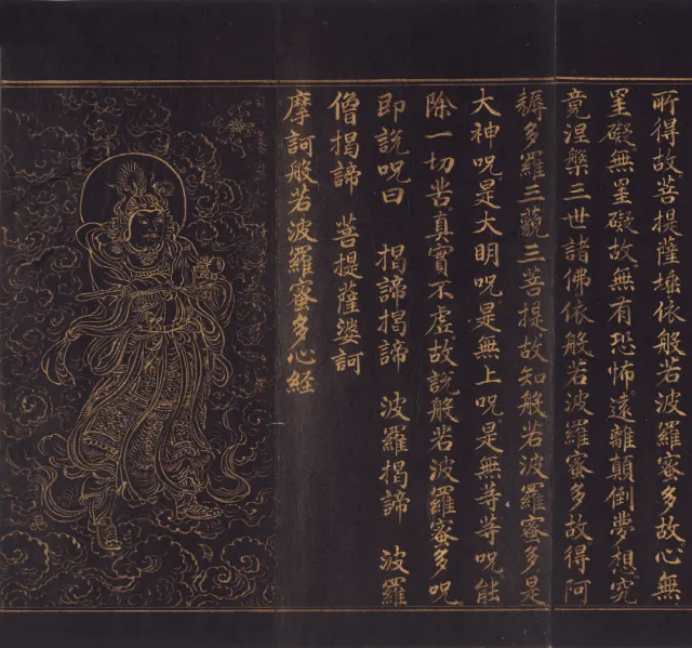 所得故菩提薩埵依般若波羅蜜多故心無
罣礙無罣礙故無有恐怖遠離顛倒夢想究
竟涅槃三世諸佛依般若波羅蜜多故得阿
耨多羅三藐三菩提故知般若波羅蜜多是
大神呪是大明呪是無上呪是無等等呪能
除一切苦真實不虛故說般若波羅蜜多呪
即說呪曰 揭諦揭諦 波羅揭諦 波羅
僧揭諦 菩提薩婆訶
摩訶般若波羅蜜多心経